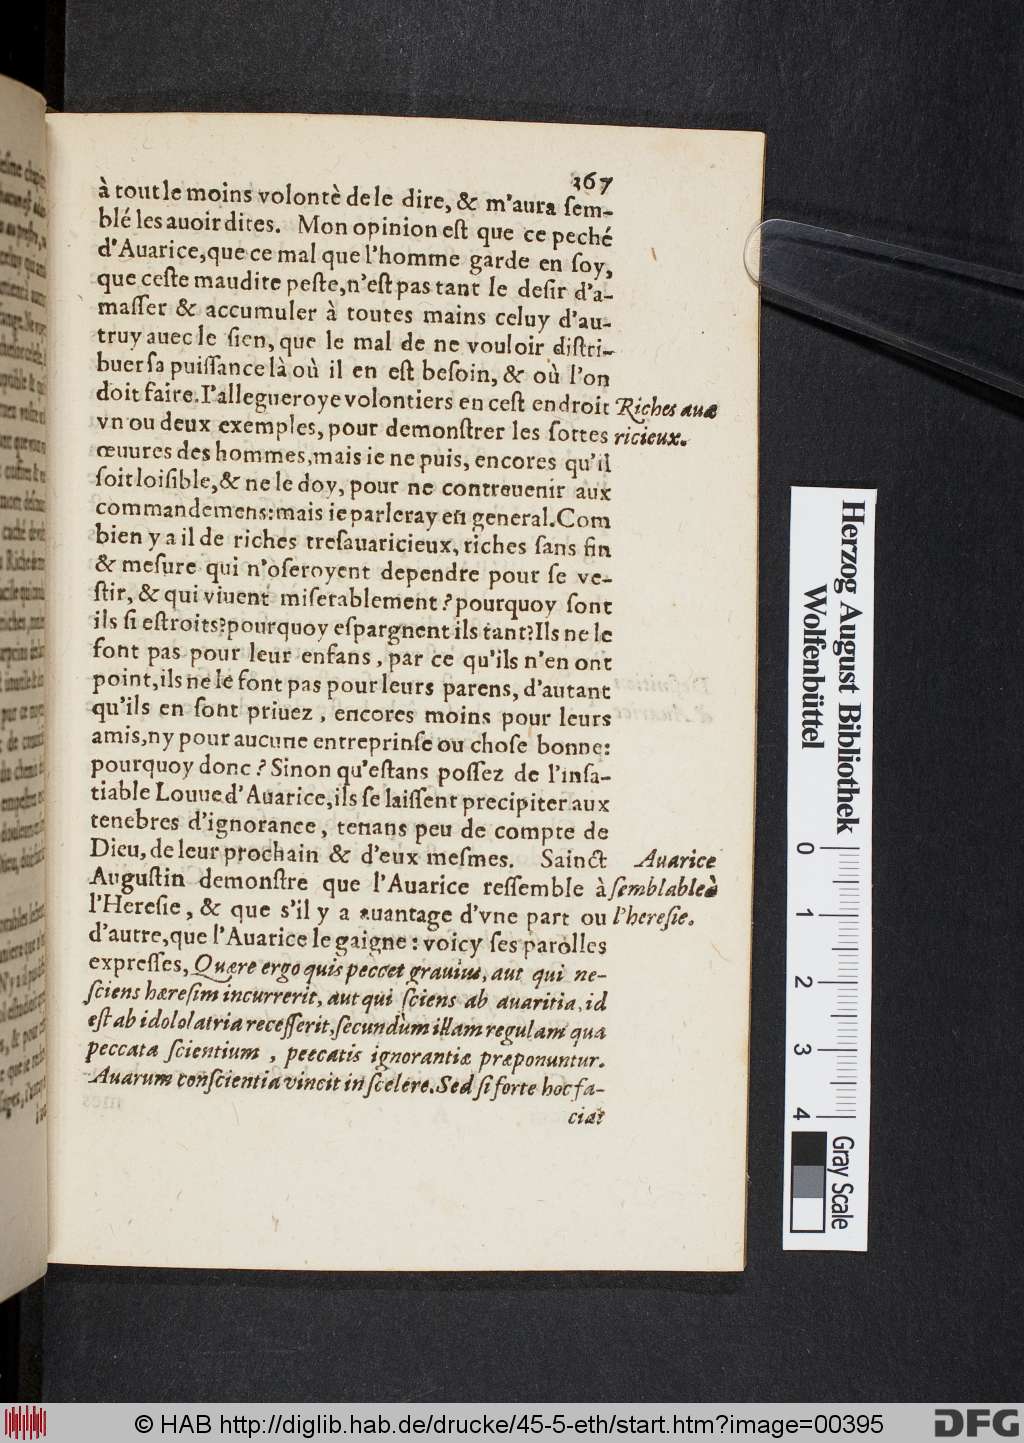 367
à tout le moins volontè de le dire, & m'aura ſem-
blé les auoir dites. Mon opinion eſt que ce peché
d'Auarice, que ce mal que l'homme garde en ſoy,
que ceſte maudite peſte, n'eſt pas tant le deſir d'a-
maſſer & accumuler à toutes mains celuy d'au-
truy auec le ſien, que le mal de ne vouloir diſtri-
buer ſa puiſſance là où il en eſt beſoin, & où l'on
doit faire. I'allegueroye volontiers en ceſt endroit
Riches aua
vn ou deux exemples, pour demonſtrer les ſottes
ricieux.
œuures des hommes, mais ie ne puis, encores qu'il
ſoit loiſible, & ne le doy, pour ne contreuenir aux
commandemens: mais ie parleray en general. Com
bien y a il de riches treſauaricieux, riches ſans fin
& meſure qui n'oſeroyent dependre pour ſe ve-
ſtir, & qui viuent miſerablement? pourquoy ſont
ils ſi eſtroits? pourquoy eſpargnent ils tant? Ils ne le
font pas pour leur enfans, par ce qu'ils n'en ont
point, ils ne le font pas pour leurs parens, d'autant
qu'ils en ſont priuez, encores moins pour leurs
amis, ny pour aucune entreprinſe ou choſe bonne:
pourquoy donc? Sinon qu'eſtans poſſez de l'inſa-
tiable Louue d'Auarice, ils ſe laiſſent precipiter aux
tenebres d'ignorance, tenans peu de compte de
Dieu, de leur prochain & d'eux meſmes. Sainct
Auarice
Auguſtin demonſtre que l'Auarice reſſemble à
ſemblable à
l'Hereſie, & que s'il y a auantage d'vne part ou
l'hereſie.
d'autre, que l'Auarice le gaigne: voicy ſes parolles
expreſſes, Quære ergo quis peccet grauius, aut qui ne-
ſciens hæreſim incurrerit, aut qui ſciens ab auaritia, id
eſt ab idololatria receſſerit, ſecundùm illam regulam qua
peccata ſcientium, peecatis ignorantiæ præponuntur.
Auarum conſcientia vincit in ſcelere. Sed ſi forte hoc fa-
ciat
Herzog August Bibliothek
Wolfenbüttel
0 1 2 3 4
Gray Scale
© HAB http://diglib.hab.de/drucke/45-5-eth/start.htm?image=00395
DFG